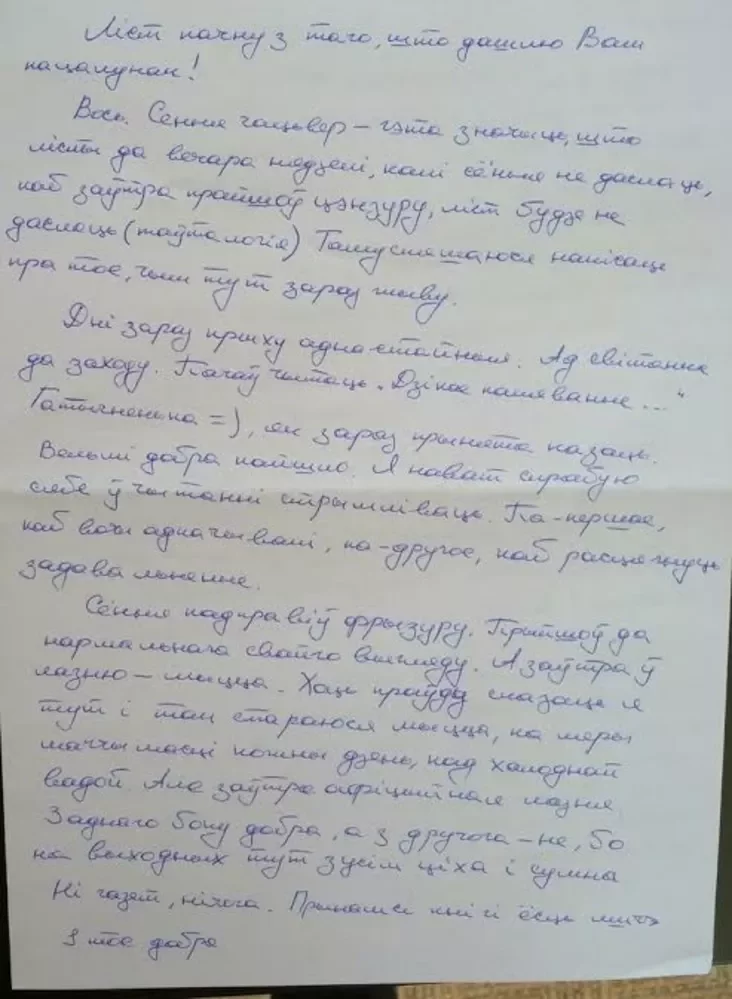 Ліст пачну з таго, што дашлю Вам
пацалунак!
Вось. Сення чацьвер – гэта значыць, што
лісты да вечара нядзелі, калі сёньня не даслаць,
каб заўтра прайшоў цэнзуру, ліст будзе не
даслаць (таўталогія) Таму спяшаюся напісаць
пра тое, чым тут зараз жыву.
Дні зараз крыху аднастайныя. Ад світання
да заходу. Пачаў чытаць „Дзікае паляванне..."
Гатычненька =), як зараз прынята казаць.
Вельмі добра пайшло. Я нават спрабую
сябе ў чытанні стрымліваць. Па-першае,
каб вочы адпачывалі, па-другое, каб расцягнуць
задавальненне.
Сёння падправіў фрызуру. Прыйшоў да
нармальнага свайго выгляду. А заўтра ў
лазню – мыцца. Хаць праўду сказаць я
тут і так стараюся мыцца, па меры
магчымасці кожны дзень, над халоднай
вадой. Але заўтра афіцыйная лазня.
З аднаго боку добра, а з другога – не, бо
на выходных тут зусім ціха і сумна
Ні газет, нічога. Прынамсі кнігі ёсць
І тое добра